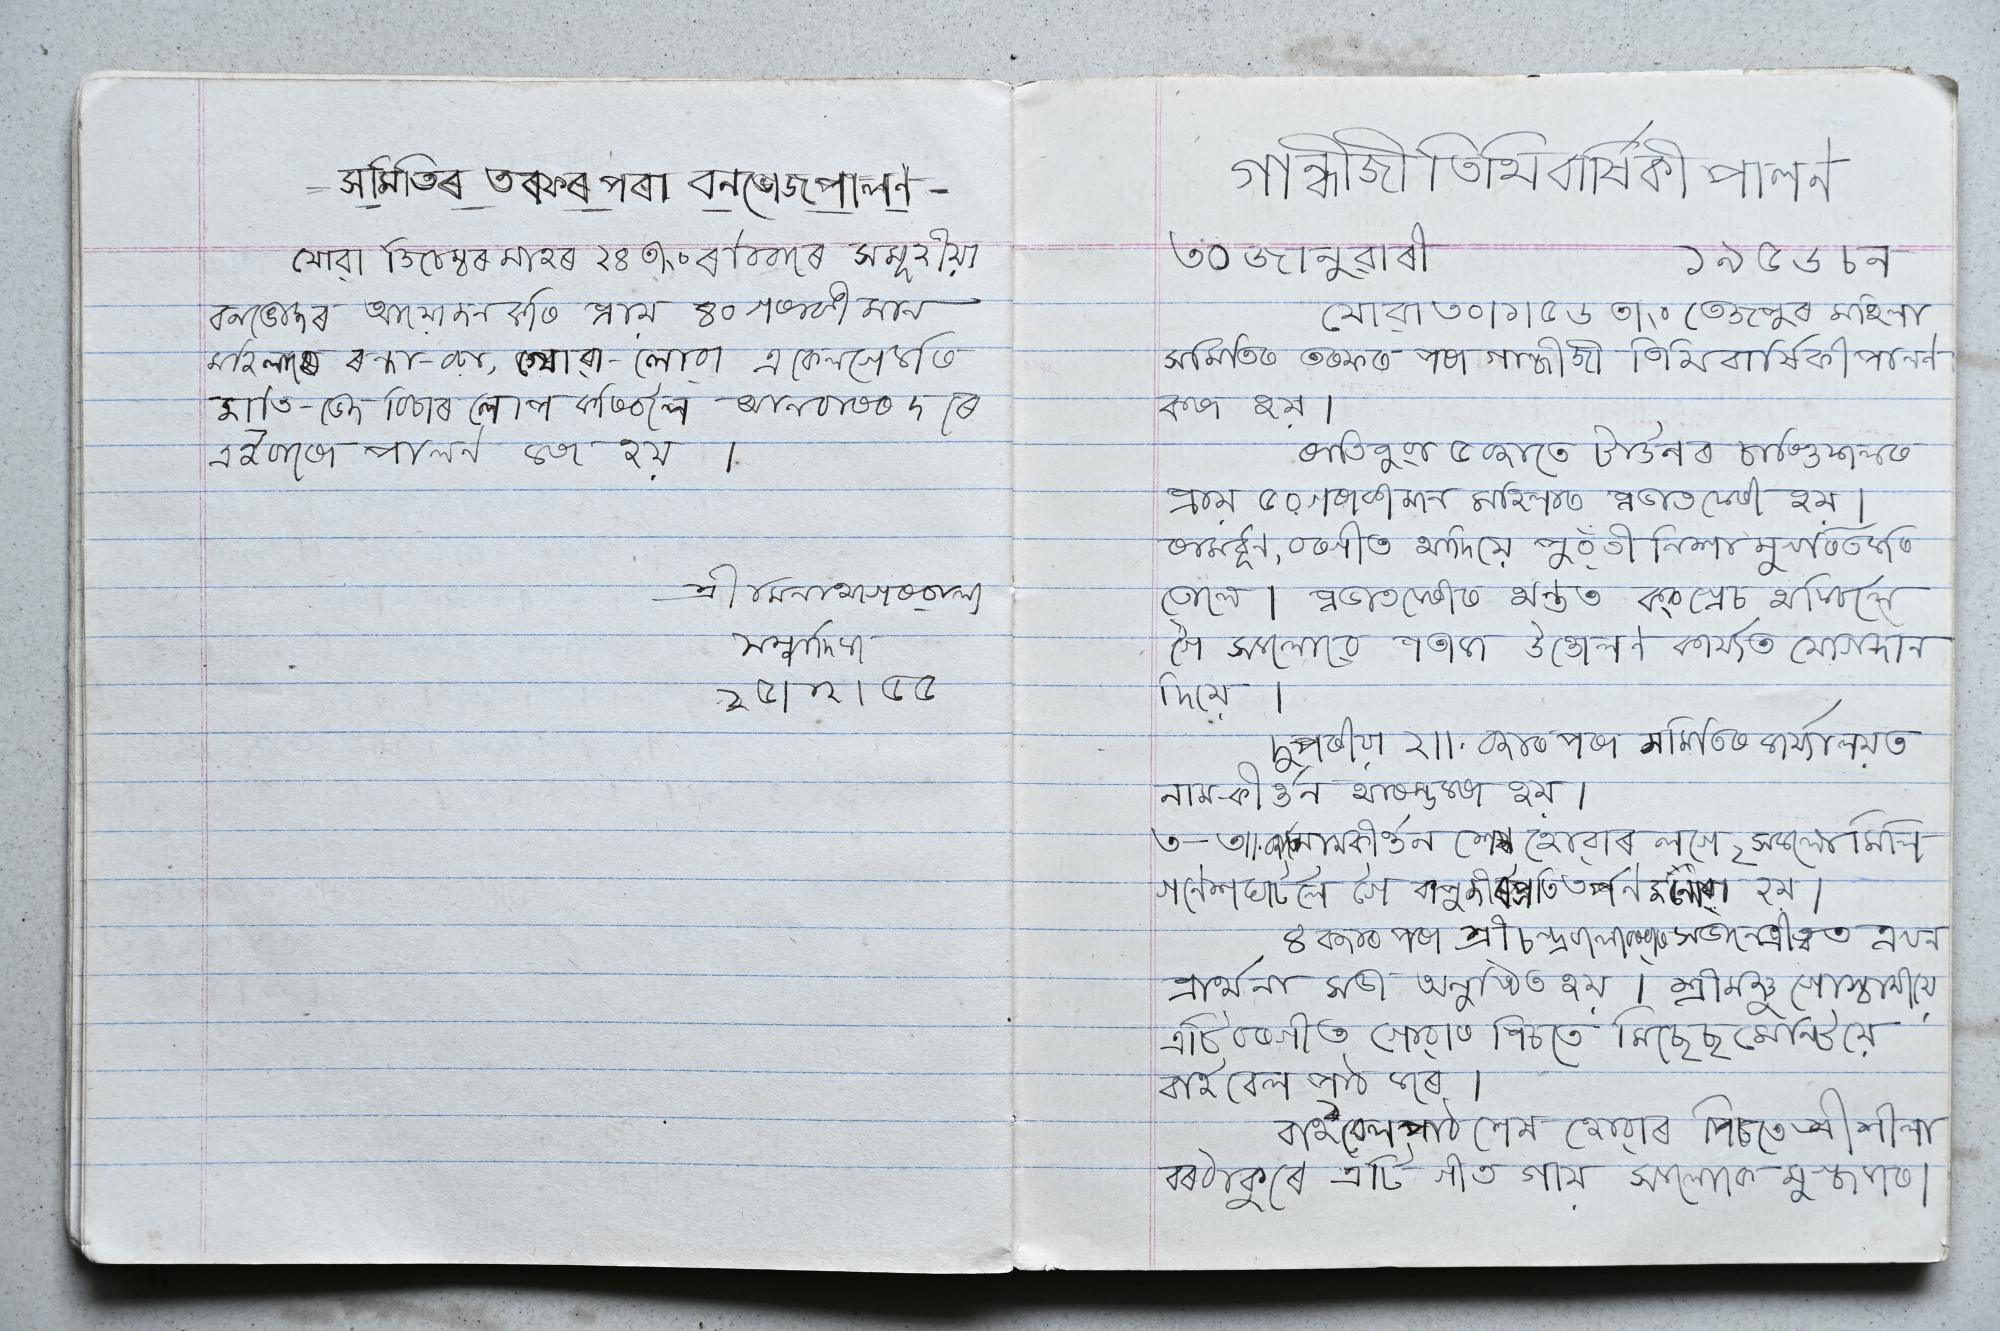 - সমিতিৰ তৰফৰ পৰা বনভোজ পালন -
যোৱা ডিচেম্বৰ মাহৰ ২৪ তাং ৰবিবাৰে সমূহীয়া
বনভোজৰ আয়োজন কৰি প্ৰায় ৪০ গৰাকী মান
মহিলাই ৰন্ধা-বঢ়া, খোৱা-লোৱা একেলগে কৰি
জাতি-ভেদ বিচাৰ লোপ কৰিবলৈ
এইদৰে পালন কৰা হয় ।
শ্ৰী মেনা আগৰৱালা
সম্পাদিকা
২৫।১২।৫৫
গান্ধীজী তিথি বাৰ্ষিকী পালন
৩০ জানুৱাৰী ১৯৫৬ চন
যোৱা ৩০।১।৫৬ তাং তেজপুৰ মহিলা
সমিতিৰ তৰফৰ পৰা গান্ধীজী তিথি বাৰ্ষিকী পালন
কৰা হয় ।
ৰাতিপুৱা ৫ বজাতে টাউনৰ চাৰিওফালে
প্ৰায় ৫০ গৰাকী মান মহিলাৰে প্ৰভাত ফেৰী হয় ।
ৰামধূন, বৰগীত আদিয়ে পুৱঁতী নিশা মুখৰিত কৰি
তোলে । প্ৰভাত ফেৰীৰ অন্তত কংগ্ৰেচ অফিচলৈ
গৈ সকলোৱে পতাকা উত্তোলন কাৰ্য্যত যোগদান
দিয়ে ।
দুপৰীয়া ২॥. বজাৰ পৰা সমিতিৰ কাৰ্য্যালয়ত
নাম-কীৰ্ত্তন আৰম্ভ কৰা হয় ।
৩-৩॥. বজাত নামকীৰ্ত্তন শেষ হোৱাৰ লগে ২ সকলো মিলি
গনেশঘাটলৈ গৈ বাপুজীৰ প্ৰতি তৰ্পন জনোৱা হয় ।
৪ বজাৰ পৰা শ্ৰী সভানেত্ৰীত্বত এখন
প্ৰাৰ্থনা সভা অনুষ্ঠিত হয় । শ্ৰীমঞ্জু গোস্বামীয়ে
এটি বৰগীত গোৱাৰ পিচতে মিছেছ
বাইবেল পাঠ কৰে ।
বাইবেল পাঠ শেষ হোৱাৰ পিচতে শ্ৰী শীলা
বৰঠাকুৰে এটি গীত গায় সকলোকে মুগ্ধ কৰে ।